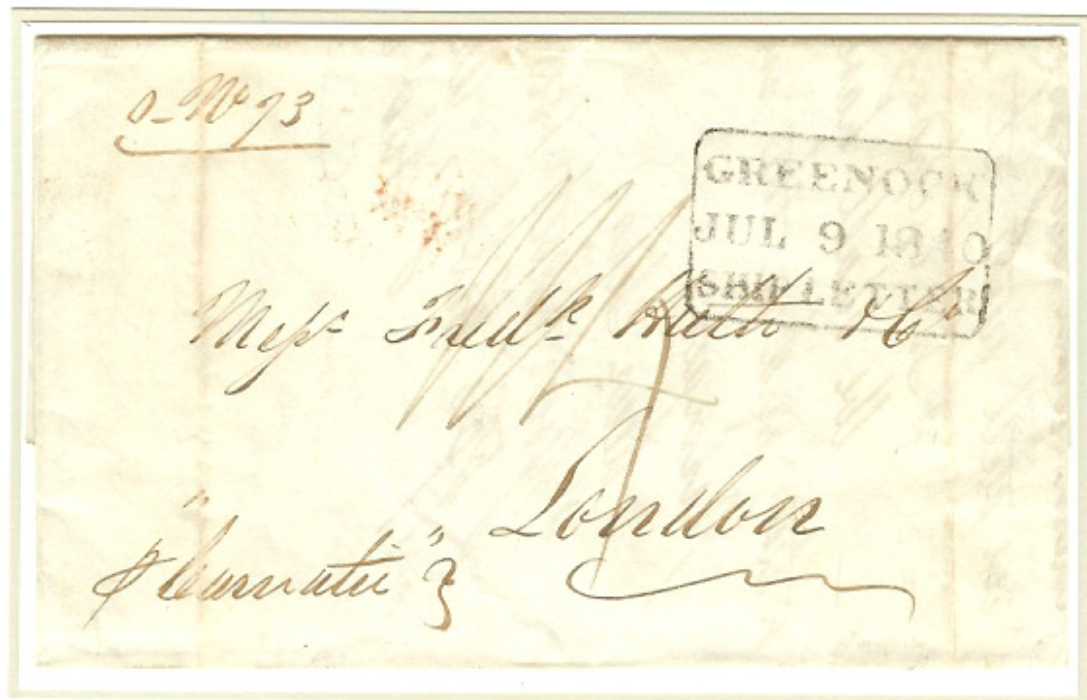 No 73
GREENOCK
JUL 9 1840
SHIP LETTER
Messrs Fredk Huth & Co
London
p "Carnatic"